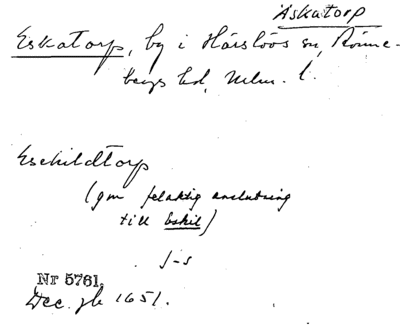 Äskatorp
Eskatorp, by i Härslövs sn, Rönne-
bergs hd, Mlm. l.
Eschildtorp
(gm felaktig anslutning
till Eskil)
J-s
Nr 5761.
Dec. jb 1651.